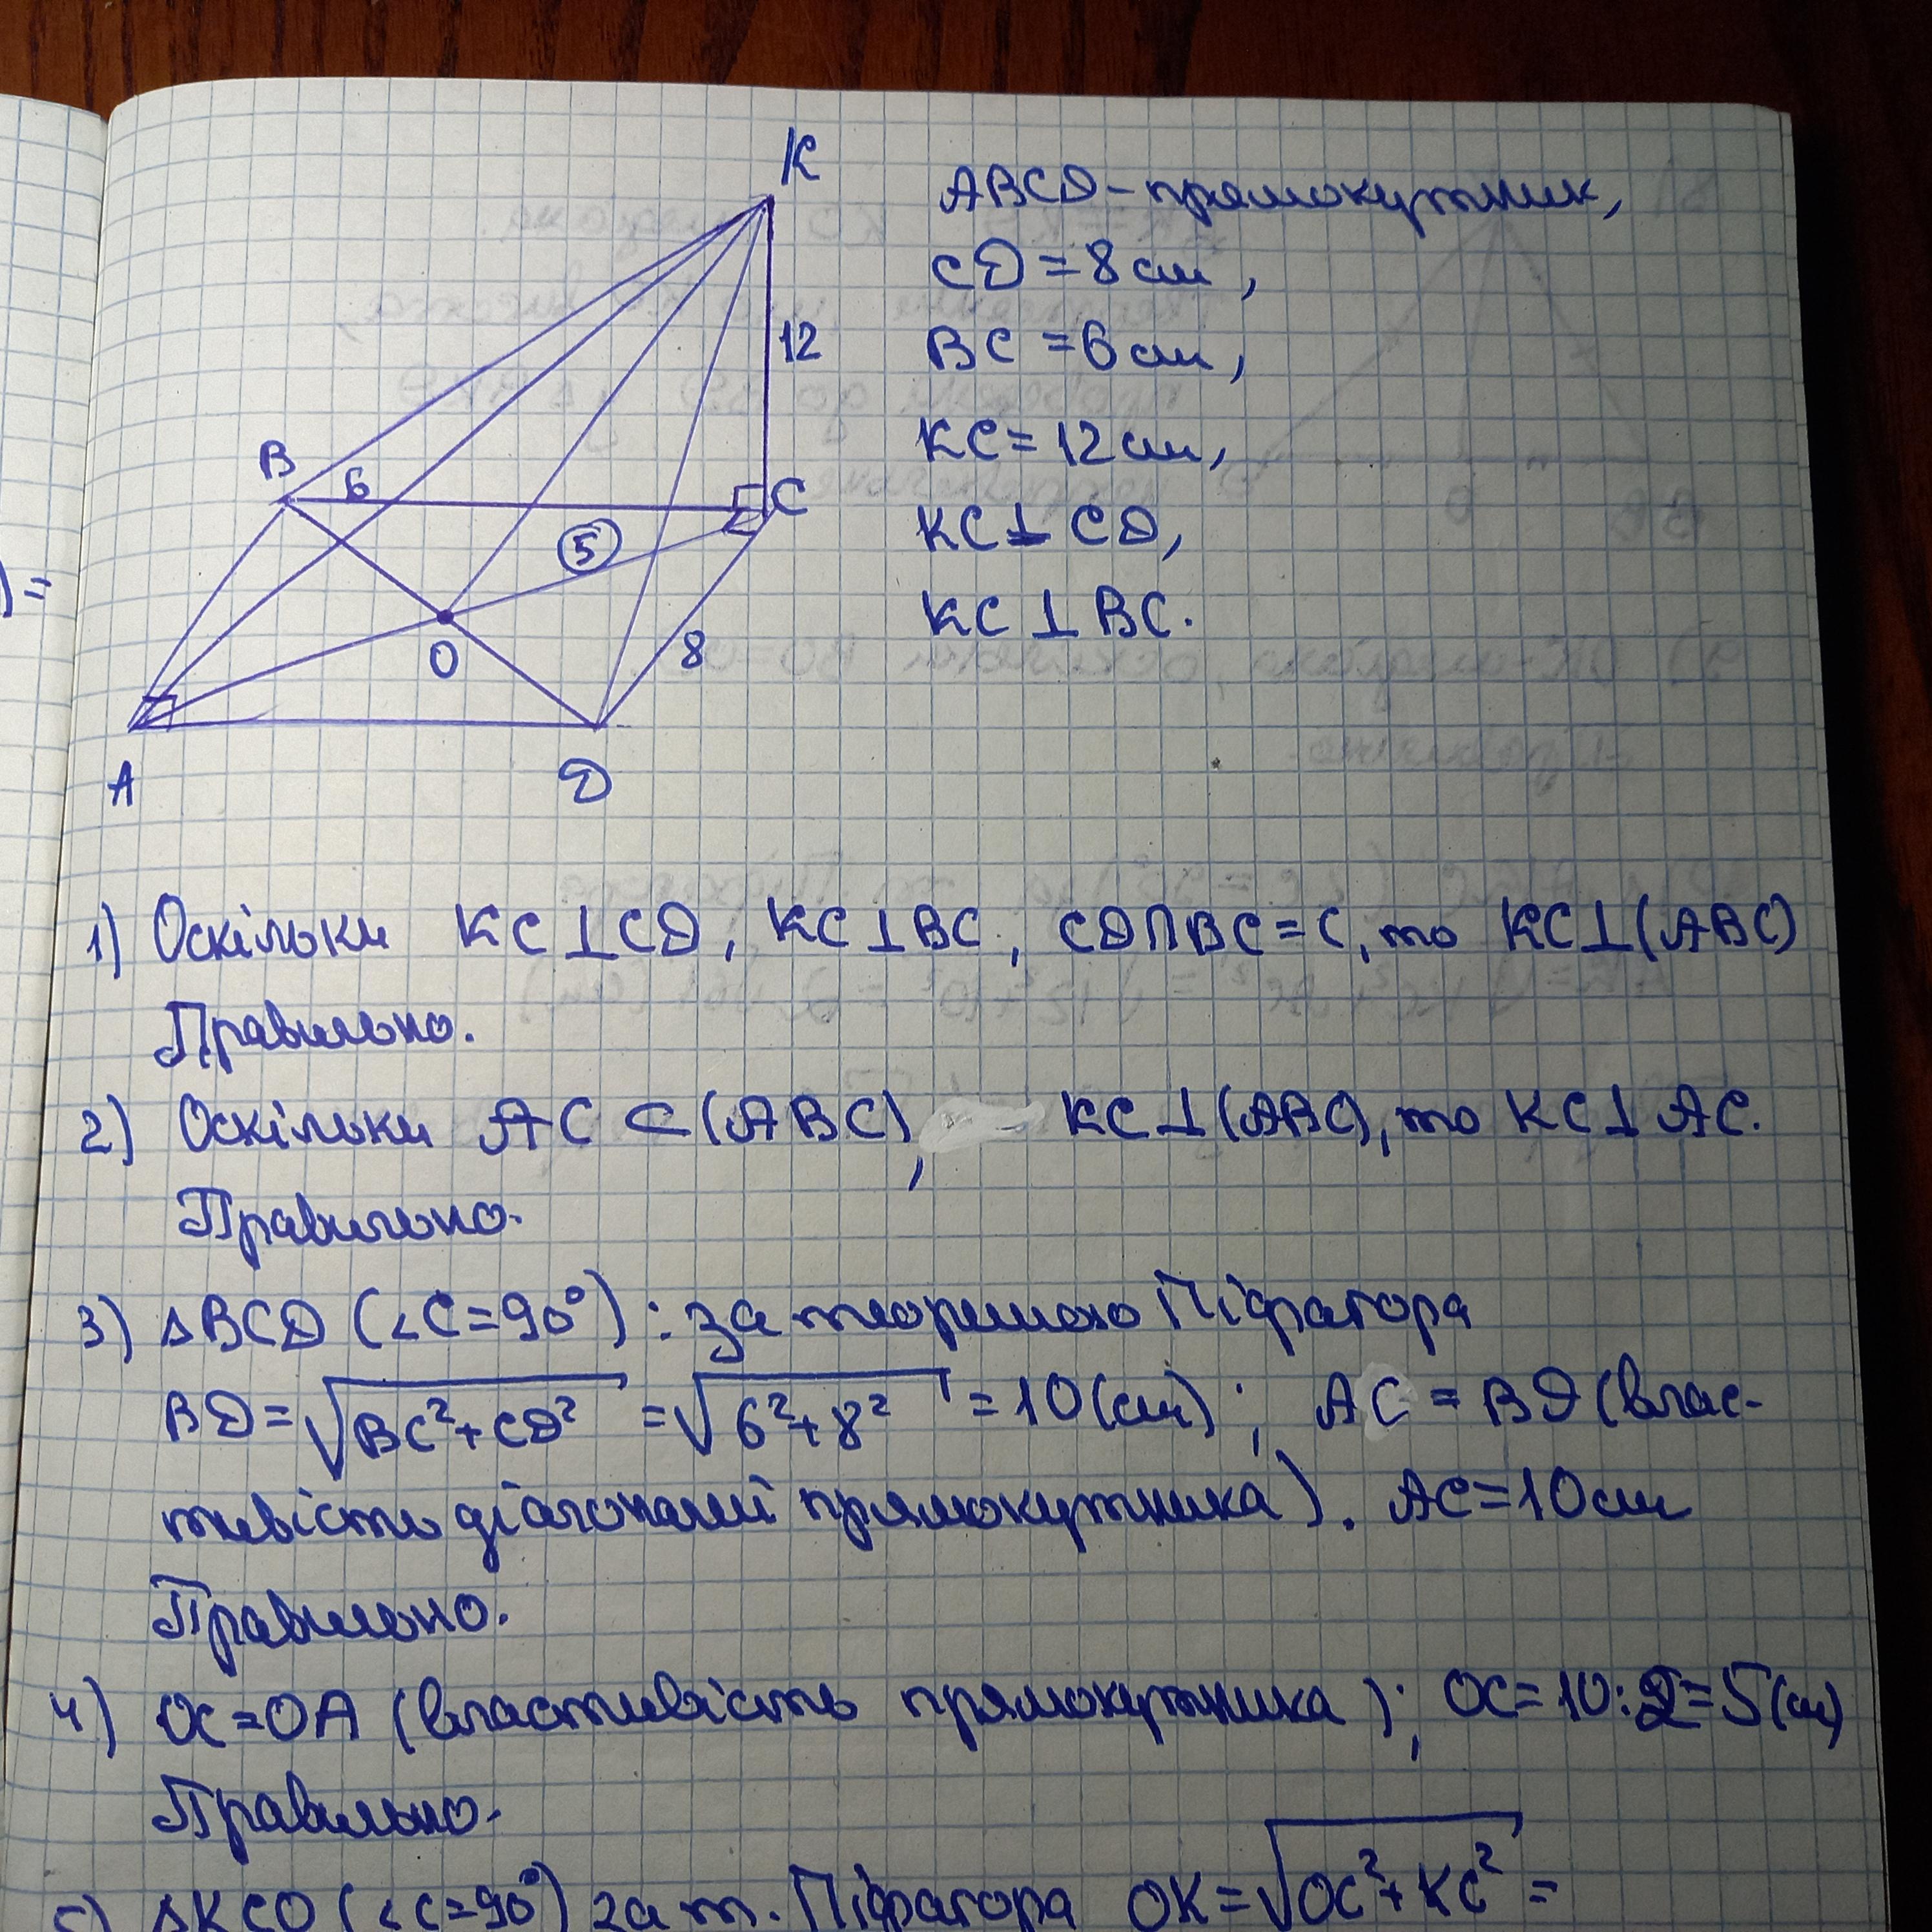 K
12
B
6
C
5
O
8
A
D
ABCD - прямокутник,
CD = 8 см,
BC = 6 см,
KC = 12 см,
KC ⊥ CD,
KC ⊥ BC.
)=
1) Оскільки KC ⊥ CD, KC ⊥ BC, CD ∩ BC = C, то KC ⊥ (ABC)
Правильно.
2) Оскільки AC ⊂ (ABC), KC ⊥ (ABC), то KC ⊥ AC.
Правильно.
3) ΔBCD (∠C = 90°): за теоремою Піфагора
BD = √(BC² + CD²) = √(6² + 8²) = 10 (см); AC = BD (влас-
тивість діагоналей прямокутника). AC = 10 см
Правильно.
4) OC = OA (властивість прямокутника); OC = 10 : 2 = 5 (см)
Правильно.
5) ΔKCO (∠C = 90°) за т. Піфагора OK = √(OC² + KC²) =